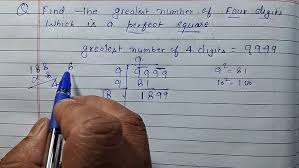 Q Find the greatest number of Four digits
which is a perfect square.
greatest number of 4 digits = 9999
9
9 9999 9² = 81
9 81 10² = 100
18 1899
188 8